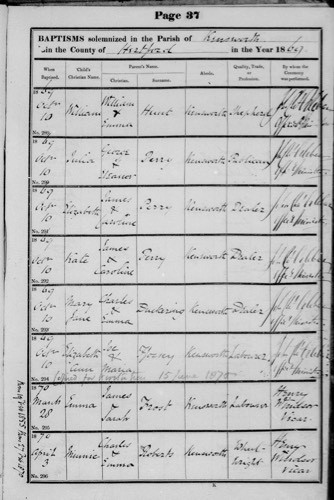 Page 37
BAPTISMS solemnized in the Parish of Kensworth
in the County of Hertford in the Year 1869
When Baptized. Child's Christian Name. Parent's Name. Abode. Quality, Trade, or Profession. By whom the Ceremony was performed.
Christian. Surname.
1869 Octr 10 William William & Emma Hunt Kensworth Shepherd
No. 289
1869 Octr 10 Julia George & Eleanor Perry Kensworth
No. 290
1869 Octr 10 Elizabeth James & Caroline Perry Kensworth Dealer
No. 291
1869 Octr 10 Kate James & Caroline Perry Kensworth Dealer
No. 292
1869 Octr 10 Mary Jane Charles & Emma Kensworth Dealer
No. 293
1869 Octr 10 Elizabeth & Maria Kensworth Labourer
No. 294
1870 March 28 Emma James & Sarah Frost Kensworth Labourer Henry Windsor Vicar
No. 295
1870 April 3 Minnie Charles & Emma Roberts Kensworth Wheelwright Henry Windsor Vicar
No. 296